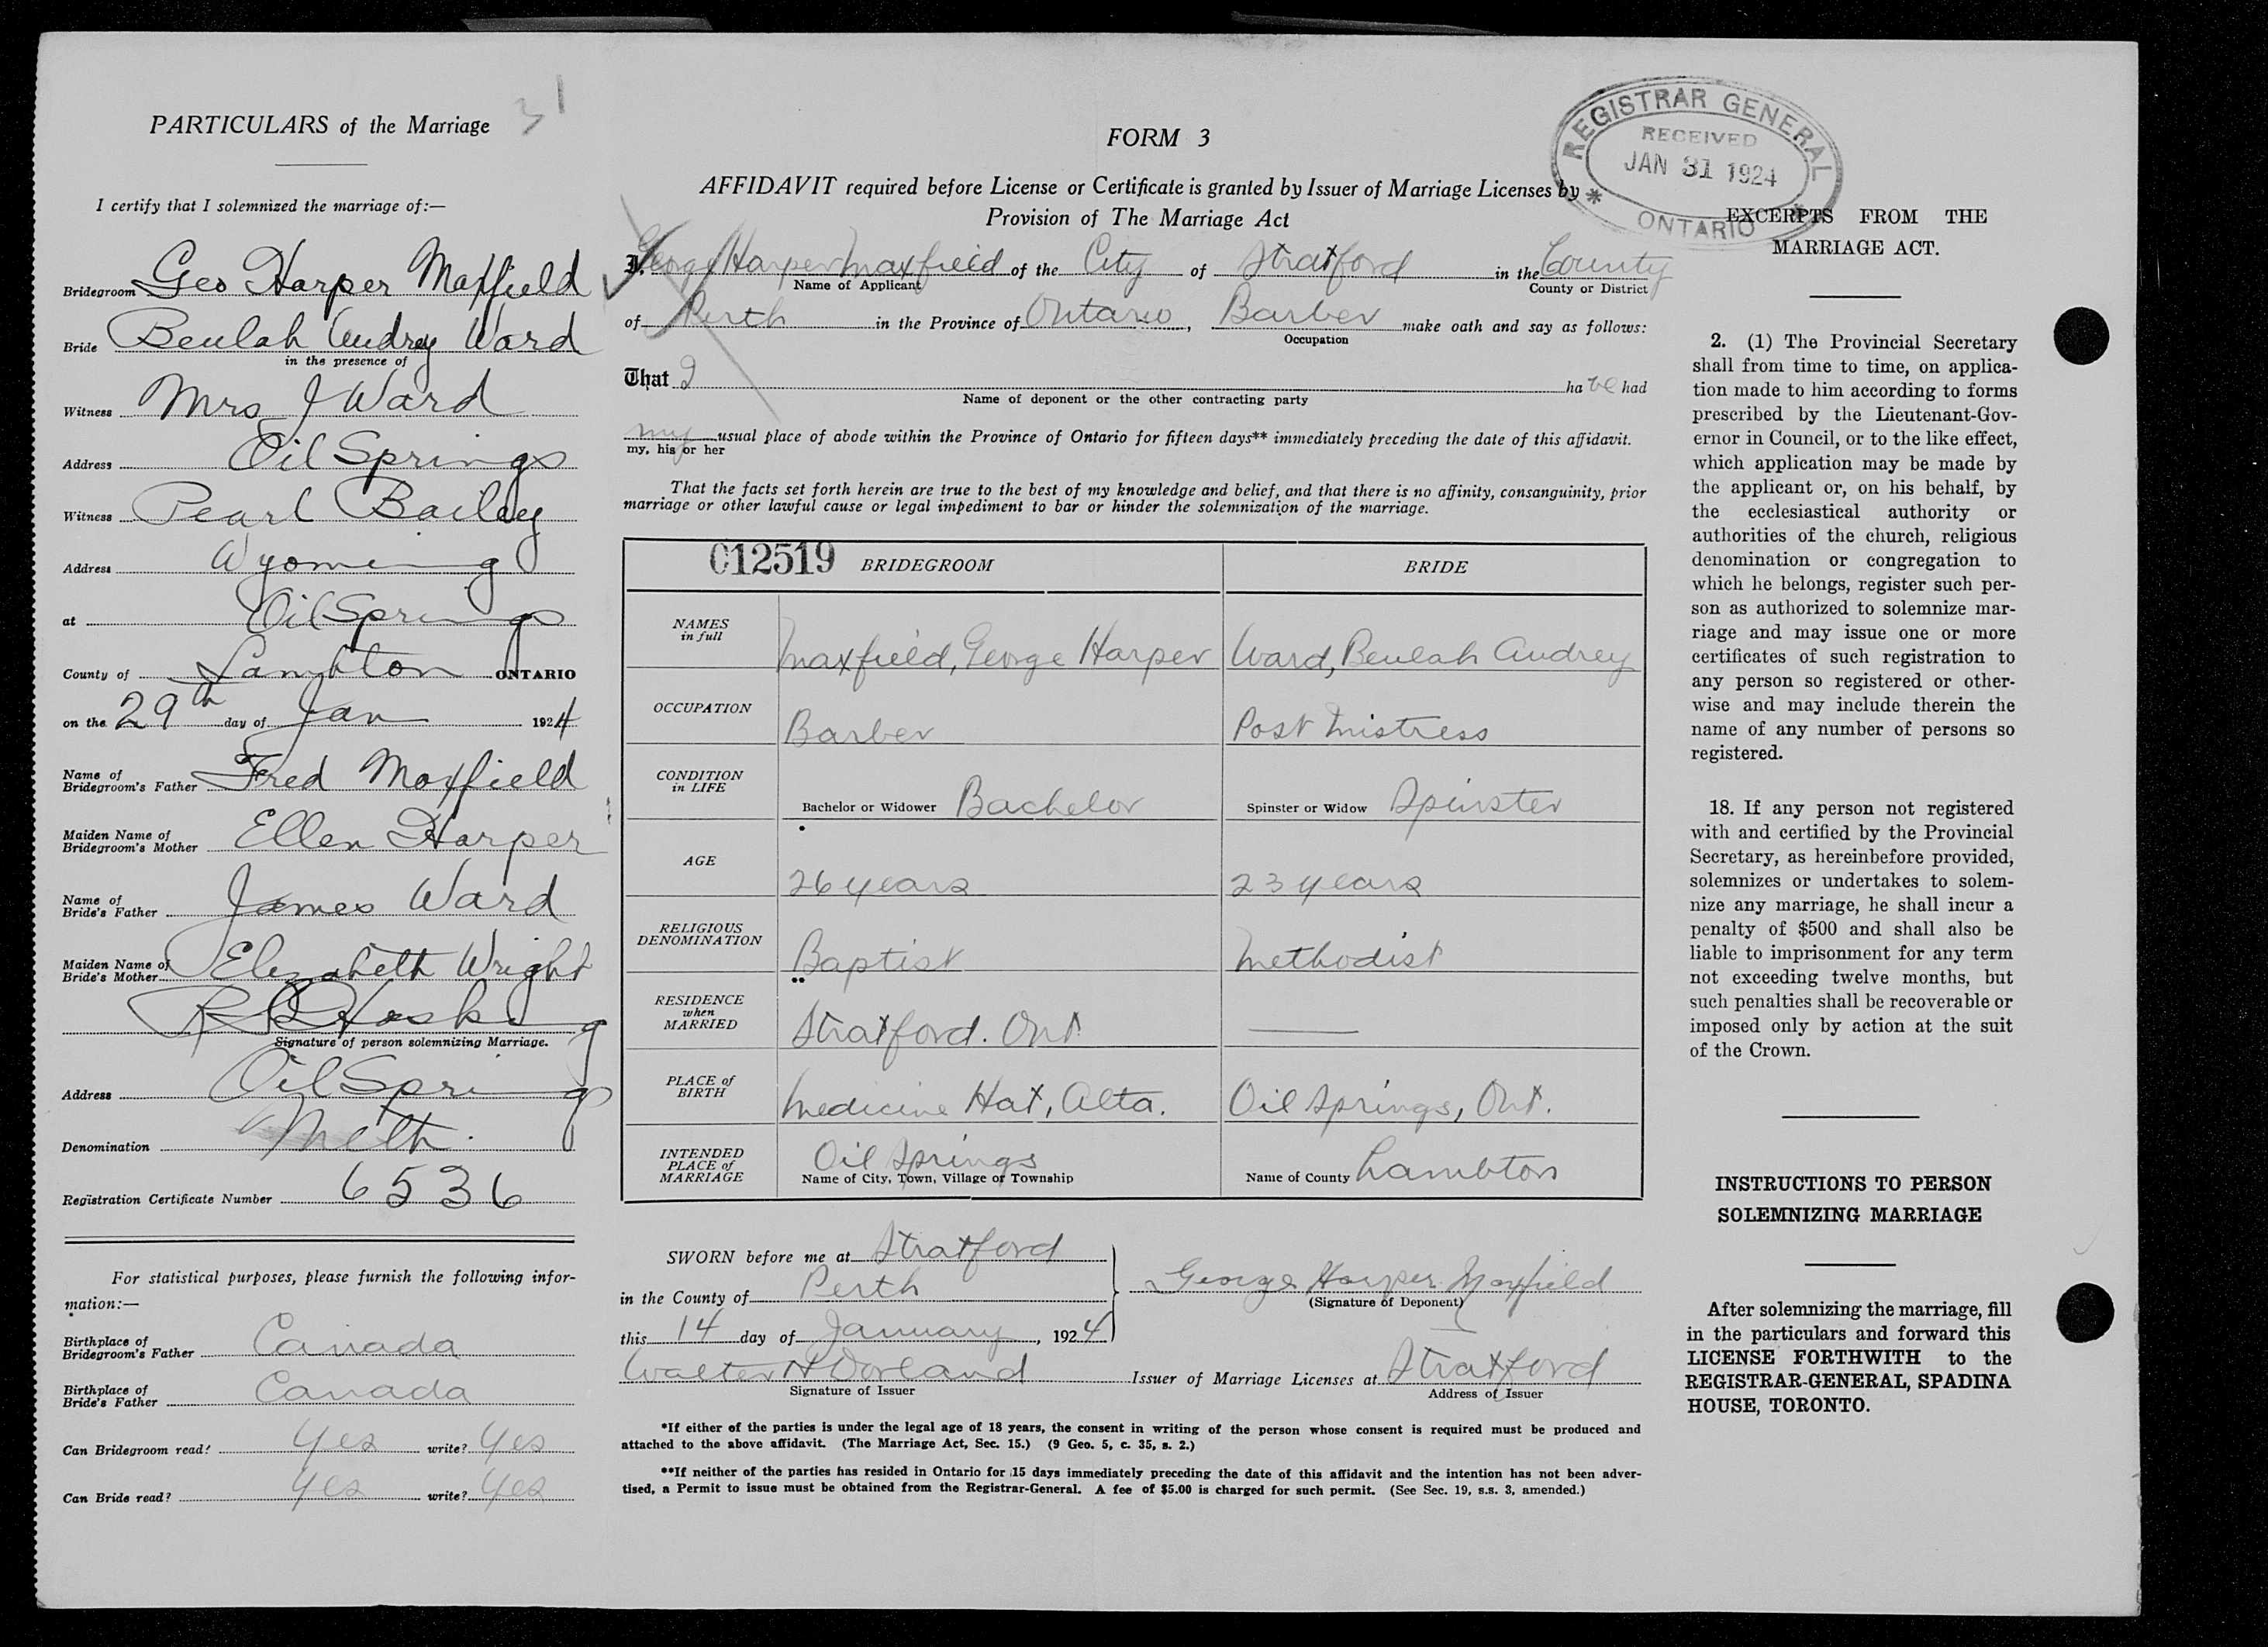 31
PARTICULARS of the Marriage
I certify that I solemnized the marriage of:—
Bridegroom Geo Harper Maxfield
Bride Beulah Audrey Ward
in the presence of
Witness Mrs J Ward
Address Oil Springs
Witness Pearl Bailey
Address Wyoming
at Oil Springs
County of Lambton ONTARIO
on the 29th day of Jan 1924
Name of
Bridegroom's Father Fred Maxfield
Maiden Name of
Bridegroom's Mother Ellen Harper
Name of
Bride's Father James Ward
Maiden Name of
Bride's Mother Elizabeth Wright
Hosking
Signature of person solemnizing Marriage.
Address Oil Springs
Denomination Meth.
Registration Certificate Number 6536
For statistical purposes, please furnish the following infor-
mation:—
Birthplace of
Bridegroom's Father Canada
Birthplace of
Bride's Father Canada
Can Bridegroom read? Yes write? Yes
Can Bride read? Yes write? Yes
FORM 3
AFFIDAVIT required before License or Certificate is granted by Issuer of Marriage Licenses by
Provision of The Marriage Act
I, George Harper Maxfield of the City of Stratford in the County
Name of Applicant County or District
of Perth in the Province of Ontario, Barber make oath and say as follows:
Occupation
That I have had
Name of deponent or the other contracting party
my usual place of abode within the Province of Ontario for fifteen days** immediately preceding the date of this affidavit.
my, his or her
That the facts set forth herein are true to the best of my knowledge and belief, and that there is no affinity, consanguinity, prior
marriage or other lawful cause or legal impediment to bar or hinder the solemnization of the marriage.
012519 BRIDEGROOM BRIDE
NAMES
in full
Maxfield, George Harper Ward, Beulah Audrey
OCCUPATION
Barber Post Mistress
CONDITION
in LIFE
Bachelor or Widower Bachelor Spinster or Widow Spinster
AGE
26 years 23 years
RELIGIOUS
DENOMINATION
Baptist Methodist
RESIDENCE
when
MARRIED
Stratford. Ont —
PLACE of
BIRTH
Medicine Hat, Alta. Oil Springs, Ont.
INTENDED
PLACE of
MARRIAGE
Oil Springs Lambton
Name of City, Town, Village or Township Name of County
SWORN before me at Stratford
in the County of Perth
this 14 day of January, 1924
George Harper Maxfield
(Signature of Deponent)
Walter H Dorland Issuer of Marriage Licenses at Stratford
Signature of Issuer Address of Issuer
*If either of the parties is under the legal age of 18 years, the consent in writing of the person whose consent is required must be produced and
attached to the above affidavit. (The Marriage Act, Sec. 15.) (9 Geo. 5, c. 35, s. 2.)
**If neither of the parties has resided in Ontario for 15 days immediately preceding the date of this affidavit and the intention has not been adver-
tised, a Permit to issue must be obtained from the Registrar-General. A fee of $5.00 is charged for such permit. (See Sec. 19, s.s. 3, amended.)
REGISTRAR GENERAL
RECEIVED
JAN 31 1924
* ONTARIO *
EXCERPTS FROM THE
MARRIAGE ACT.
2. (1) The Provincial Secretary
shall from time to time, on applica-
tion made to him according to forms
prescribed by the Lieutenant-Gov-
ernor in Council, or to the like effect,
which application may be made by
the applicant or, on his behalf, by
the ecclesiastical authority or
authorities of the church, religious
denomination or congregation to
which he belongs, register such per-
son as authorized to solemnize mar-
riage and may issue one or more
certificates of such registration to
any person so registered or other-
wise and may include therein the
name of any number of persons so
registered.
18. If any person not registered
with and certified by the Provincial
Secretary, as hereinbefore provided,
solemnizes or undertakes to solem-
nize any marriage, he shall incur a
penalty of $500 and shall also be
liable to imprisonment for any term
not exceeding twelve months, but
such penalties shall be recoverable or
imposed only by action at the suit
of the Crown.
INSTRUCTIONS TO PERSON
SOLEMNIZING MARRIAGE
After solemnizing the marriage, fill
in the particulars and forward this
LICENSE FORTHWITH to the
REGISTRAR-GENERAL, SPADINA
HOUSE, TORONTO.